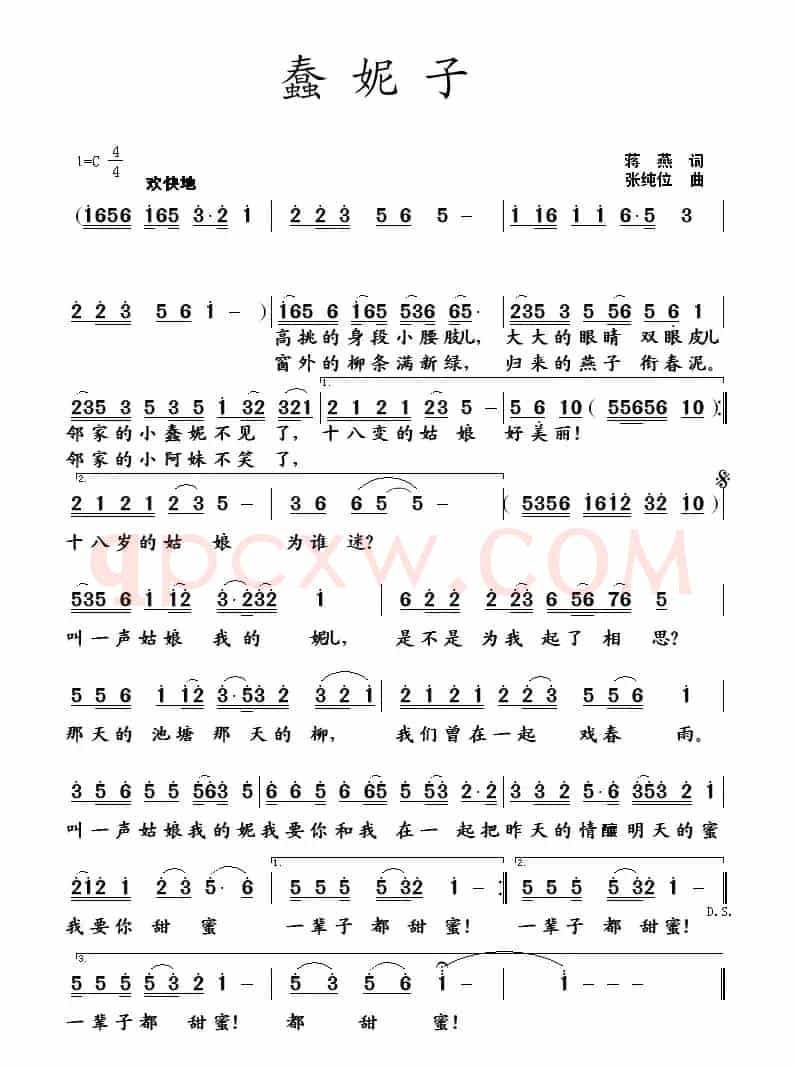 蠢妮子
1=C 4/4
欢快地
蒋 燕 词
张纯位 曲
(1656 165 3·2 1 | 2 2 3 5 6 5 – | 1 16 1 1 6·5 3 |
2 2 3 5 6 1 – ) | 165 6 165 536 65· | 235 3 5 56 5 6 1
高挑的身段小腰肢儿， 大大的眼睛 双眼皮儿
窗外的柳条满新绿， 归来的燕子 衔春泥。
1.
235 3 5 3 5 1 32 321 | 2 1 2 1 23 5 – | 5 6 10 ( 55656 10 ) :||
邻家的小蠢妮不见 了， 十八变的姑 娘 好美丽！
邻家的小阿妹不笑 了，
2.
2 1 2 1 2 3 5 – | 3 6 6 5 5 – | ( 5356 1612 32 10 )
十八岁的姑 娘 为谁 迷？
535 6 1 12 3·232 1 | 6 2 2 2 23 6 56 76 5
叫一声姑娘 我的 妮儿， 是不是 为我 起了 相 思？
5 5 6 1 12 3·53 2 3 2 1 | 6 2 2 2 2 3 5 6 1
那天的 池塘 那 天的 柳， 我们曾在一起 戏春 雨。
3 6 5 5 563 5 | 6 6 5 6 5 3 5 53 2·2 | 3 3 2 5·6 353 2 1
叫一声姑娘我的妮我要你和我 在一 起把昨天的情酿明天的蜜
1. 2.
212 1 2 3 5·6 | 5 5 5 5 32 1 – :|| 5 5 5 5 32 1 – |
D.S.
我要你 甜 蜜 一辈子 都 甜蜜！ 一辈子 都 甜蜜！
3.
5 5 5 5 3 2 1 – | 5 3 5 6 1 – | 1 – – – ||
一辈子都 甜蜜！ 都 甜 蜜！
qpcxw.COM